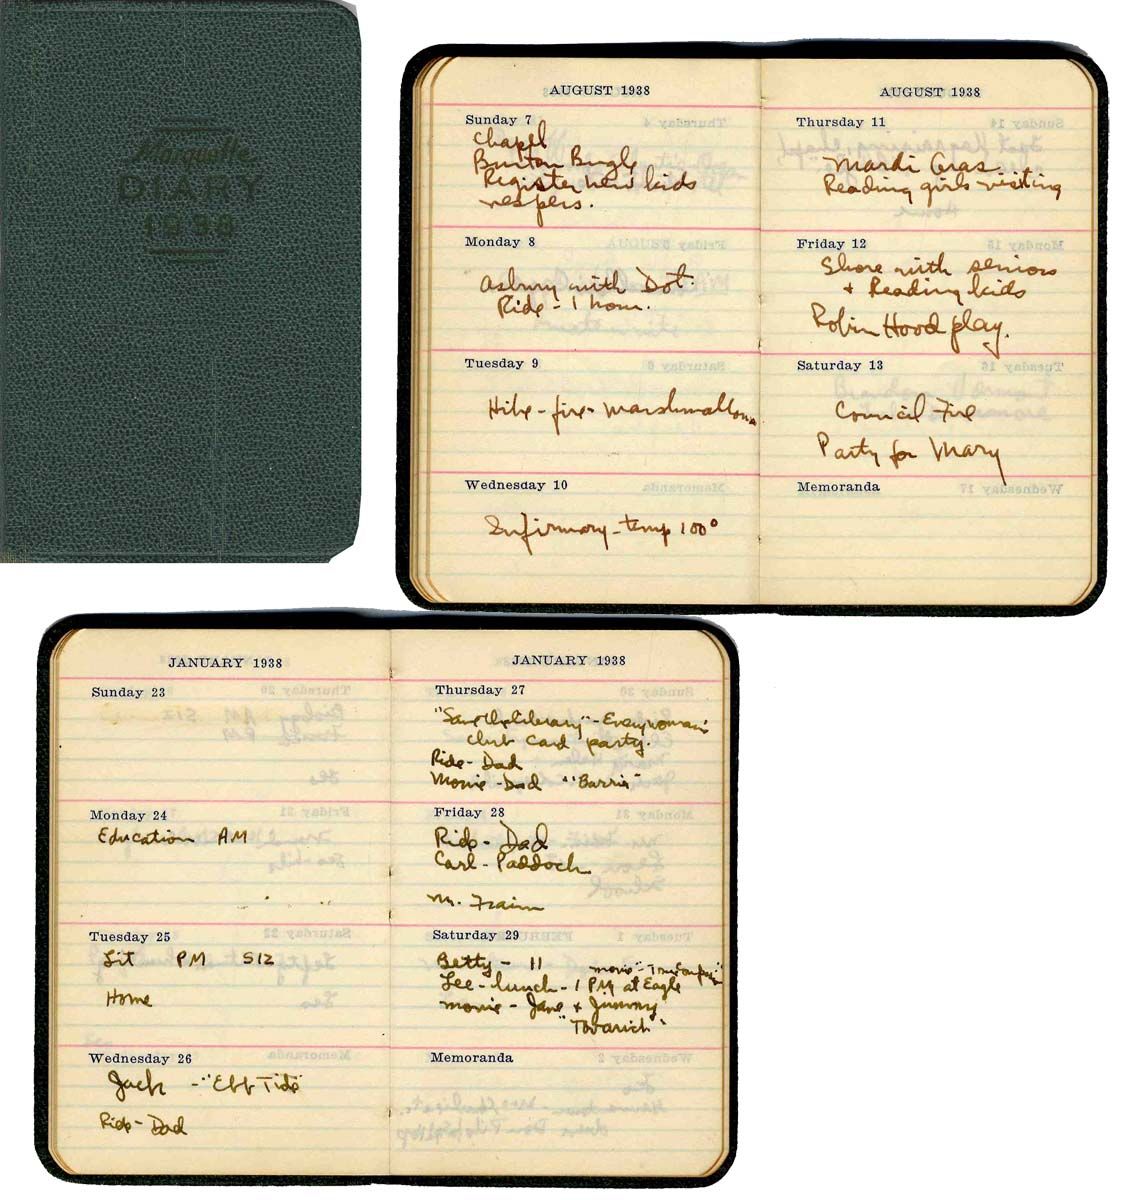 DIARY
1938
AUGUST 1938
Sunday 7
Chapel
Burton Bugle
Register new kids
vespers.
Monday 8
Asbury with Dot.
Ride - 1 hour.
Tuesday 9
Hike - fire - marshmallows
Wednesday 10
Infirmary - temp 100°
AUGUST 1938
Thursday 11
Mardi Gras.
Reading girls visiting
Friday 12
Shore with seniors
+ Reading kids
Robin Hood play.
Saturday 13
Council Fire
Party for Mary
Memoranda
JANUARY 1938
Sunday 23
Monday 24
Education AM
Tuesday 25
Lit PM S12
Home
Wednesday 26
Jack - "Ebb Tide"
Ride - Dad
JANUARY 1938
Thursday 27
- Everywoman's
club card party.
Ride - Dad
Movie - Dad "Barrier"
Friday 28
Ride - Dad
Carl - Paddock
Saturday 29
Betty - 11 movie -
Lee - lunch - 1 PM at Eagle
movie - Jane + Jimmy
"Tovarich"
Memoranda